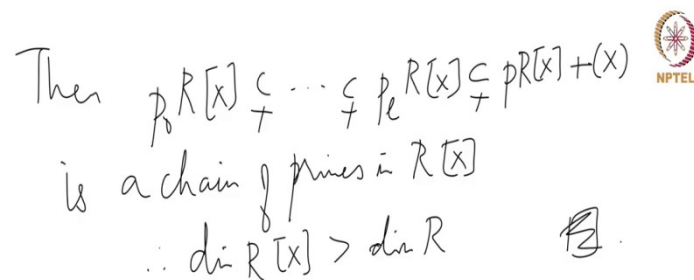 Then p₀R[X] ⊊ ⋯ ⊊ pₑR[X] ⊊ pR[X] + (X)
is a chain of primes in R[X]
∴ dim R[X] > dim R
NPTEL